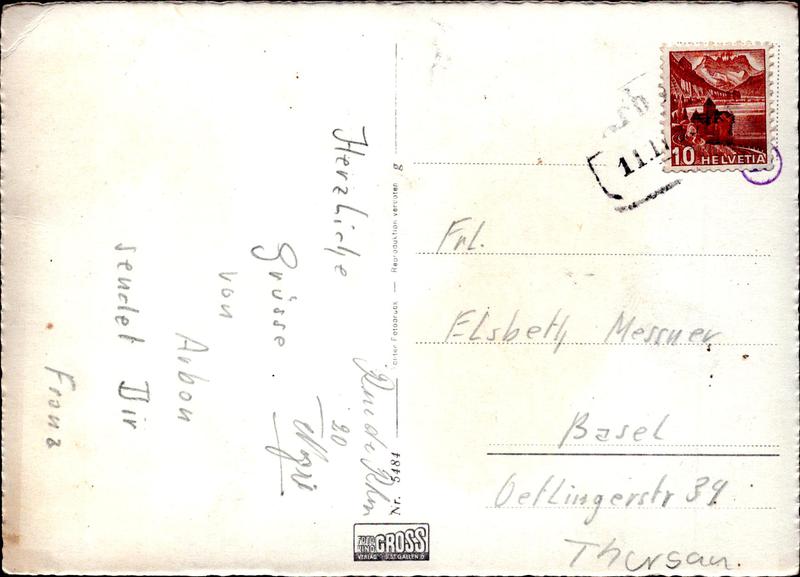 Herzliche
Grüsse
von
Arbon
sendet Dir
Franz
Echter Fotodruck — Reproduktion verboten g
Nr. 5484
20
FOTO GROSS
VERLAG ST. GALLEN
11.11
10 HELVETIA
Frl.
Elsbeth Messner
Basel
Oetlingerstr 39